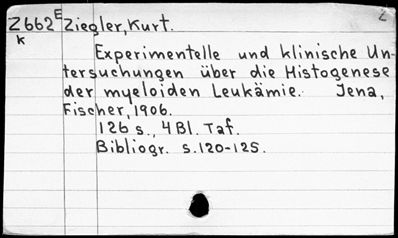 Z662E Ziegler, Kurt. Z
k
Experimentelle und klinische Un-
tersuchungen über die Histogenese
der myeloiden Leukämie. Jena,
Fischer, 1906.
126 s., 4 Bl. Taf.
Bibliogr. s.120-125.